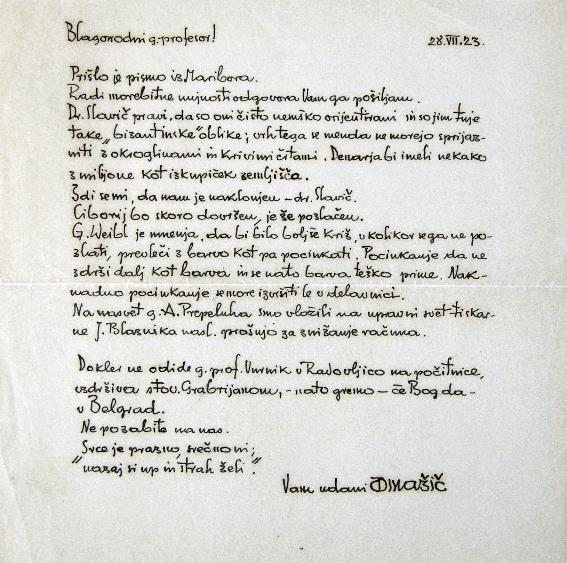 Blagorodni g. profesor!
28.VII.23.
Prišlo je pismo iz Maribora.
Radi morebitne nujnosti odgovora Vam ga pošiljam.
Dr. Slavič pravi, da so oni čisto nemško orijentirani in so jim tuje
take „bizantinske" oblike; vrh tega se menda ne morejo sprijaz-
niti z okroglinami in krivimi črtami. Denarja bi imeli nekako
3 milijone kot izkupiček zemljišča.
Zdi se mi, da nam je naklonjen – dr. Slavič.
Ciborij bo skoro dovršen, je še pozlačen.
G. Weibl je mnenja, da bi bilo boljše križ, v kolikor se ga ne po-
zlati, prevleči z barvo kot pa pocinkati. Pocinkanje da ne
zdrži dalj kot barva in se nato barva teško prime. Nak-
nadno pocinkanje se more izvršiti le v delavnici.
Na nasvet g. A. Prepeluha smo vložili na upravni svet tiskar-
ne J. Blasnika nasl. prošnjo za znižanje računa.
Dokler ne odide g. prof. Vurnik v Radovljico na počitnice,
vzdrživa s tov. Grabrijanom, – nato gremo – če Bog da –
v Belgrad.
Ne pozabite na nas.
Srce je prazno, srečno ni;
„nazaj si up in strah želi".
Vam udani